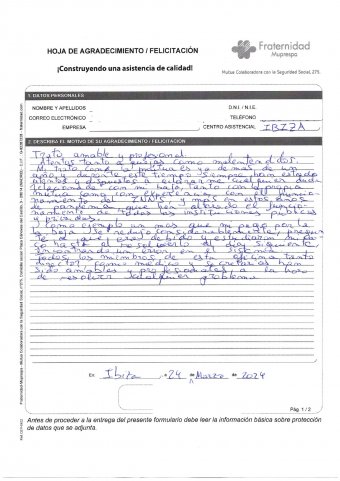 HOJA DE AGRADECIMIENTO / FELICITACIÓN
¡Construyendo una asistencia de calidad!
Fraternidad
Muprespa
Mutua Colaboradora con la Seguridad Social, 275
1. DATOS PERSONALES
NOMBRE Y APELLIDOS
D.N.I. / N.I.E.
CORREO ELECTRÓNICO
TELÉFONO
EMPRESA
CENTRO ASISTENCIAL IBIZA
2. DESCRIBA EL MOTIVO DE SU AGRADECIMIENTO / FELICITACIÓN
Trato amable y profesional.
Atentos tanto a quejas como malentendidos.
Mi trato con la mutua es ya de más de un
año y durante este tiempo siempre han estado
atentos y dispuestos a aclararme cualquier duda
relacionada con mi baja, tanto con la propia
mutua como con
namiento del INSS, y más en estos años
de pandemia que han alterado el funcio-
namiento de todas las instituciones públicas
y privadas.
Como ejemplo un mes que mi pago por la
baja se redujo considerablemente, pregun-
té de qué era debido y estudiaron mi ca-
so hasta al día siguiente
un error en el sistema.
Todos los miembros de esta oficina tanto
director como médico y secretarias han
sido amables y profesionales a la hora
de resolver cualquier problema.
En Ibiza, a 24 de Marzo de 2024
Pág. 1 / 2
Antes de proceder a la entrega del presente formulario debe leer la información básica sobre protección
de datos que se adjunta.